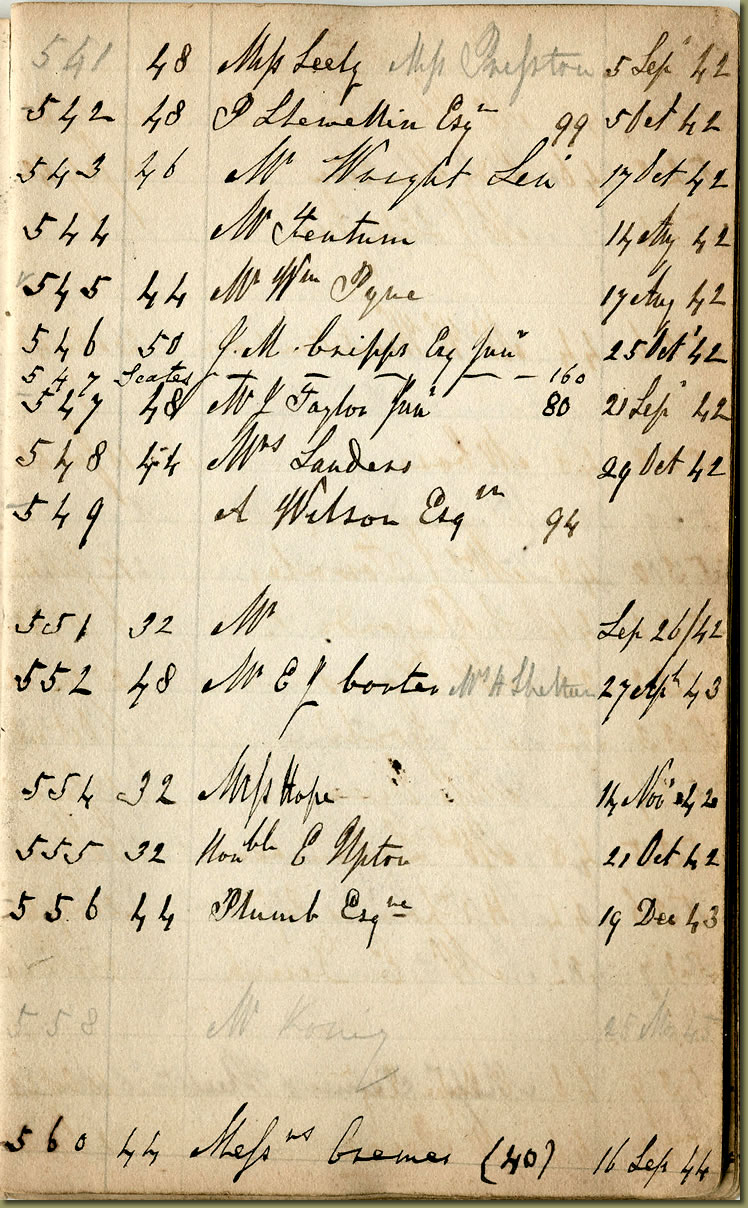 541 48 Miss Seely Miss Preston 5 Sepr 42
542 48 P Llewellin Esqre 99 5 Oct 42
543 46 Mr Wright Senr 17 Oct 42
544 Mr Fentum 14 Aug 42
545 44 Mr Wm Pyne 17 Aug 42
546 50 J. M. Cripps Esq Junr 25 Oct 42
547 Scates 160
547 48 Mr J Taylor Junr 80 21 Sepr 42
548 44 Mrs Sanders 29 Oct 42
549 A Wilson Esqre 94
551 32 Mr Sep 26/42
552 48 Mr E J Coates Mrs H Shelton 27 Apl 43
554 32 Miss Hope 14 Novr 42
555 32 Honble E Upton 21 Oct 42
556 44 Plumb Esqre 19 Dec 43
558 Mr König 25 Nov 45
560 44 Messrs Cremer (40) 16 Sep 44